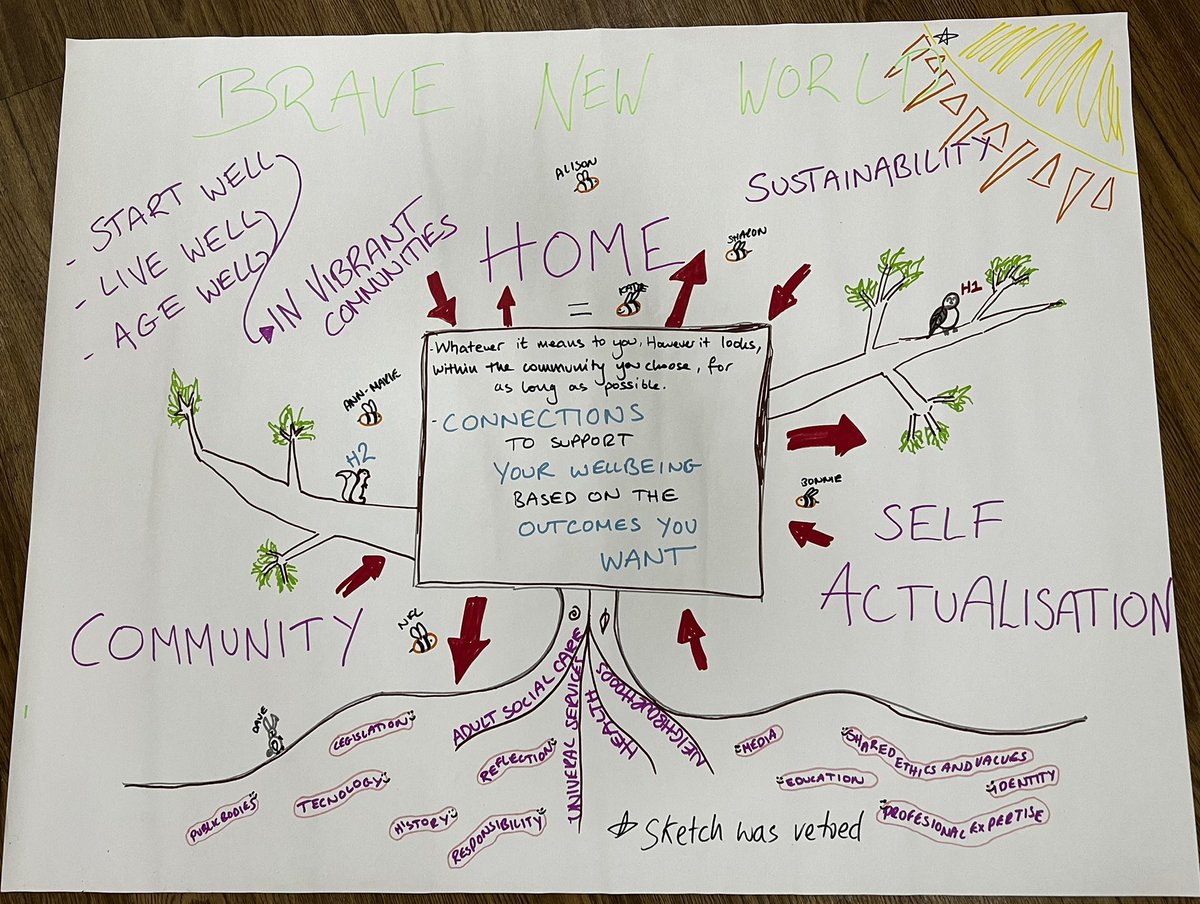 BRAVE NEW WORLD
- START WELL
- LIVE WELL
- AGE WELL
IN VIBRANT
COMMUNITIES
ALISON
SUSTAINABILITY
HOME
SHARON
=
KATIE
H1
- Whatever it means to you, However it looks,
within the community you choose, for
as long as possible.
- CONNECTIONS
TO SUPPORT
YOUR WELLBEING
BASED ON THE
OUTCOMES YOU
WANT
ANN-MARIE
H2
BONNIE
SELF
ACTUALISATION
COMMUNITY
DAVE
ADULT SOCIAL CARE
UNIVERAL SERVICES
HEALTH
NEIGHBOURHOODS
LEGISLATION
REFLECTION
TECNOLOGY
PUBLIC BODIES
HISTORY
RESPONSIBILITY
MEDIA
EDUCATION
SHARED ETHICS AND VALUES
IDENTITY
PROFESIONAL EXPERTISE
Sketch was vetoed